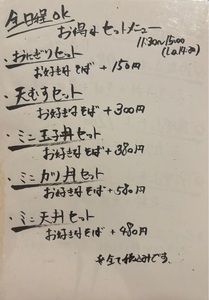 今日経ok
お得なセットメニュー
11:30〜15:00
(L.o 14:30)
・おにぎりセット
お好きなそば + 150円
・天むすセット
お好きなそば + 300円
・ミニ玉子丼セット
お好きなそば + 380円
・ミニカツ丼セット
お好きなそば + 580円
・ミニ天丼セット
お好きなそば + 480円
※全て税込みです。